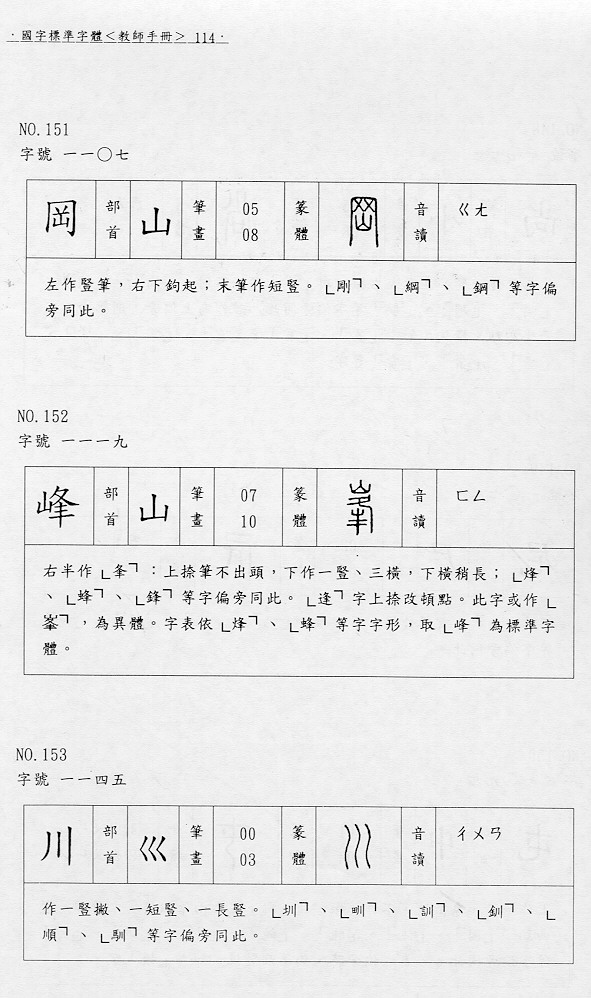 ·國字標準字體<教師手冊> 114·
NO.151
字號 一一〇七
岡 部首 山 筆畫 05 08 篆體 岡 音讀 ㄍㄤ
左作豎筆，右下鉤起；末筆作短豎。「剛」、「綱」、「鋼」等字偏
旁同此。
NO.152
字號 一一一九
峰 部首 山 筆畫 07 10 篆體 峯 音讀 ㄈㄥ
右半作「夆」：上捺筆不出頭，下作一豎、三橫，下橫稍長；「烽」
、「蜂」、「鋒」等字偏旁同此。「逢」字上捺改頓點。此字或作「
峯」，為異體。字表依「烽」、「蜂」等字字形，取「峰」為標準字
體。
NO.153
字號 一一四五
川 部首 巛 筆畫 00 03 篆體 川 音讀 ㄔㄨㄢ
作一豎撇、一短豎、一長豎。「圳」、「甽」、「訓」、「釧」、「
順」、「馴」等字偏旁同此。